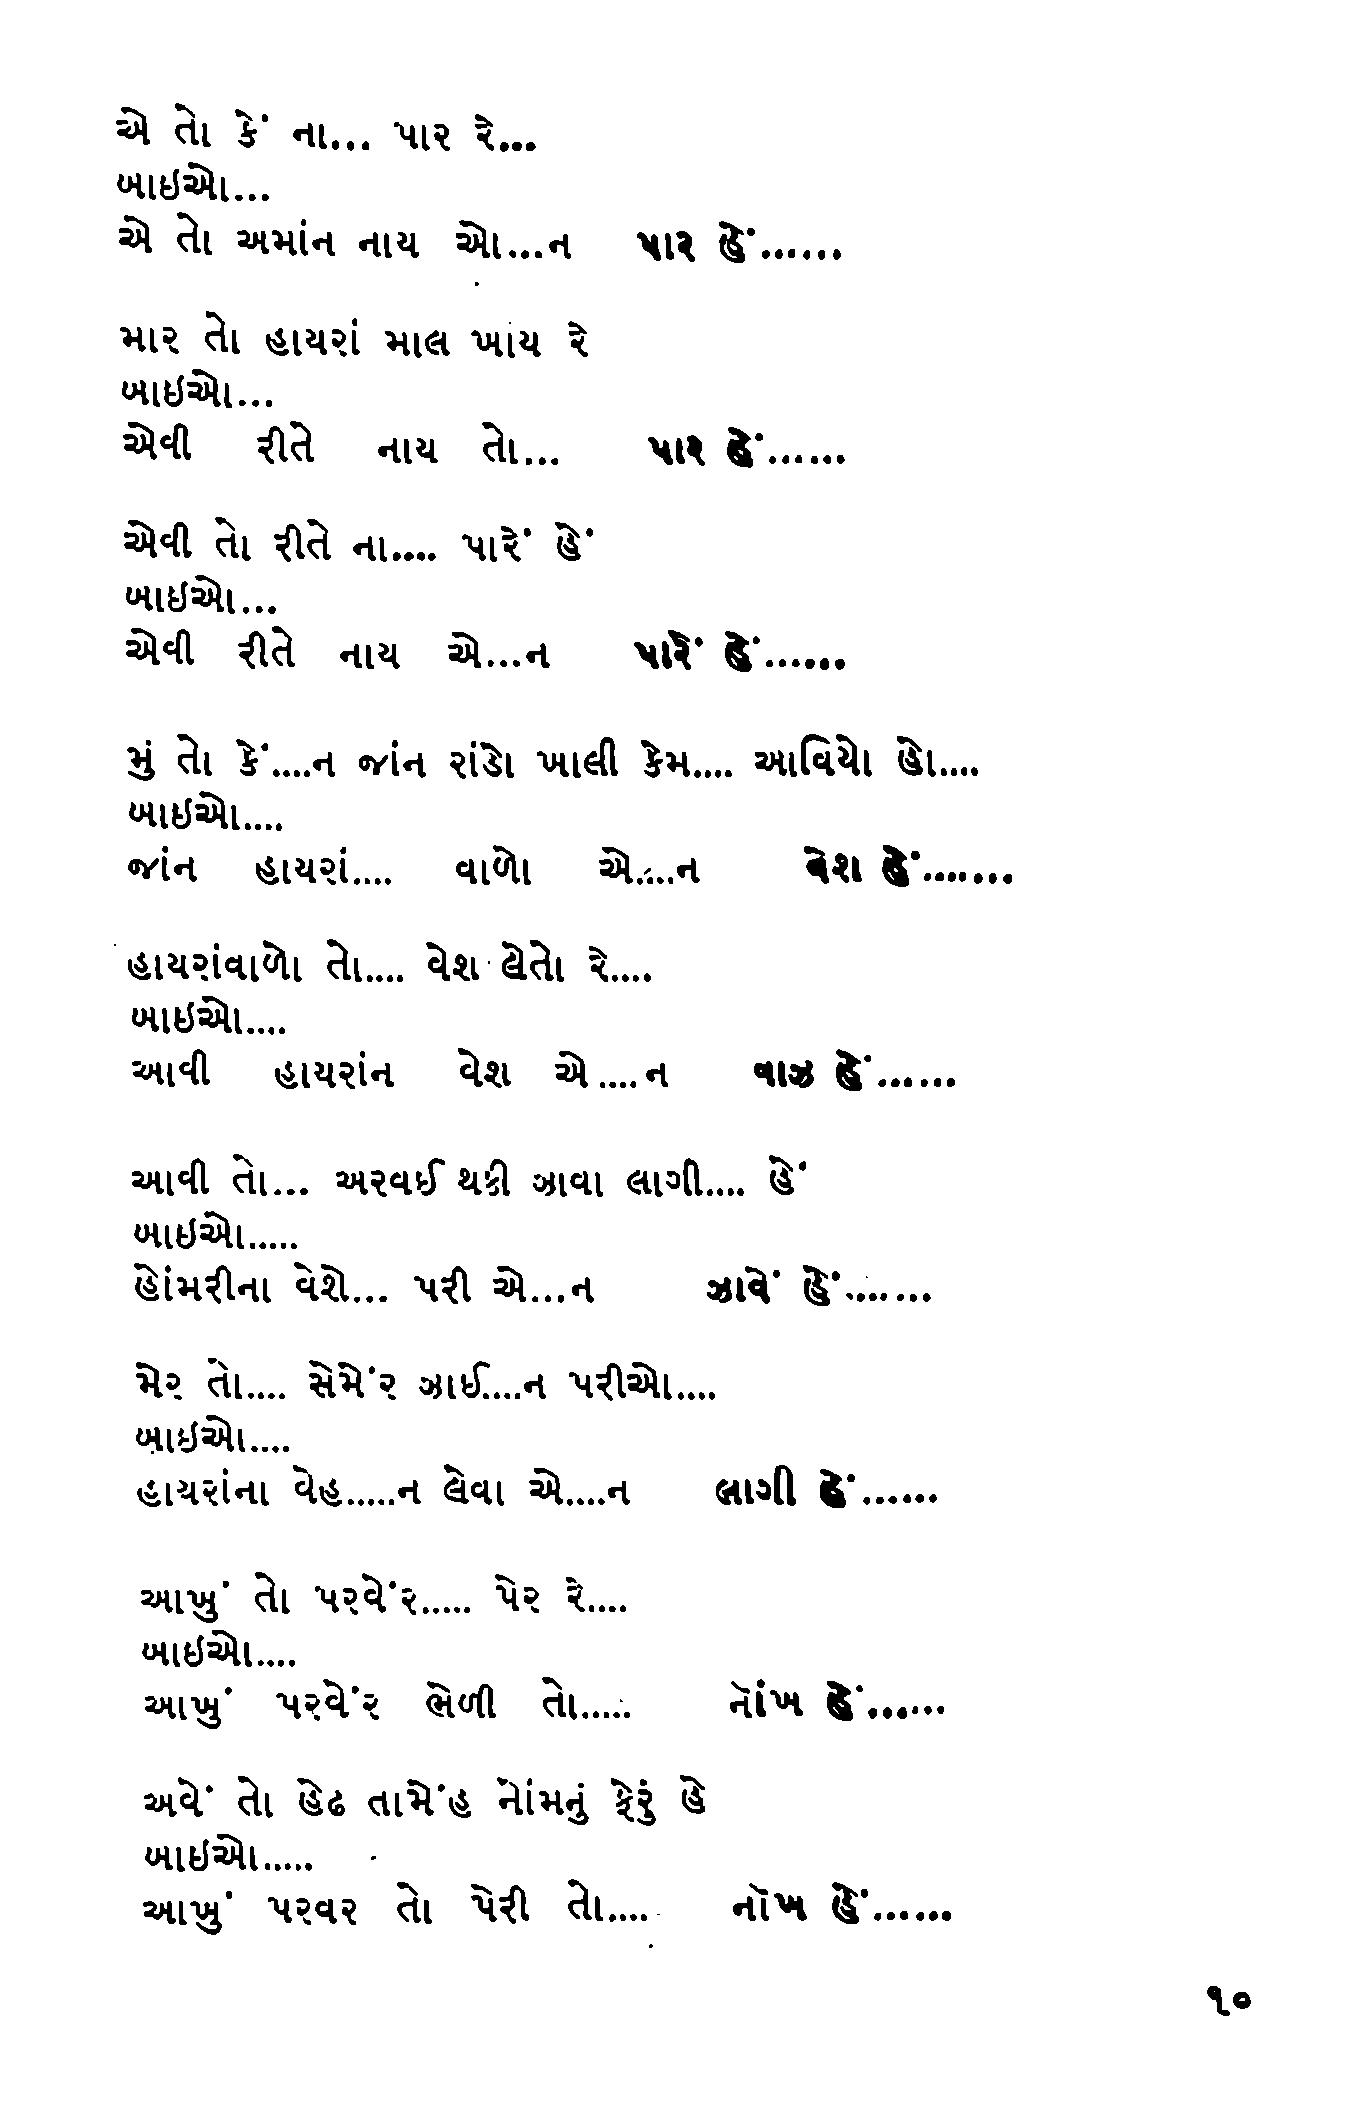 એ તો કેં ના... પાર રે...
બાઇઓ...
એ તો અમાંન નાય ઓ...ન પાર હેં......
માર તો હાયરાં માલ ખાય રે
બાઇઓ...
એવી રીતે નાય તો... પાર હેં......
એવી તો રીતે ના.... પારેં હેં
બાઇઓ...
એવી રીતે નાય એ...ન પારેં હેં......
મું તો કેં....ન જાંન રાંડો ખાલી કેમ.... આવિયો હો....
બાઇઓ....
જાંન હાયરાં.... વાળો એ....ન વેશ હેં.......
હાયરાંવાળો તો.... વેશ લેતો રે....
બાઇઓ....
આવી હાયરાંન વેશ એ....ન વાઝ હેં......
આવી તો... અરવઈ થકી ઝાવા લાગી.... હેં
બાઇઓ.....
હોંમરીના વેશે... પરી એ...ન ઝાવેં હેં.......
મેર તો.... સેમેંર ઝાઈ....ન પરીઓ....
બાઇઓ....
હાયરાંના વેહ.....ન લેવા એ....ન લાગી હેં......
આખું તો પરવેંર..... પેર રે....
બાઇઓ....
આખું પરવેંર ભેળી તો..... નૉંખ હેં......
અવેં તો હેઢ તામેંહ નોંમનું ફેરું હે
બાઇઓ.....
આખું પરવર તો પેરી તો.... નૉંખ હેં......
૧૦